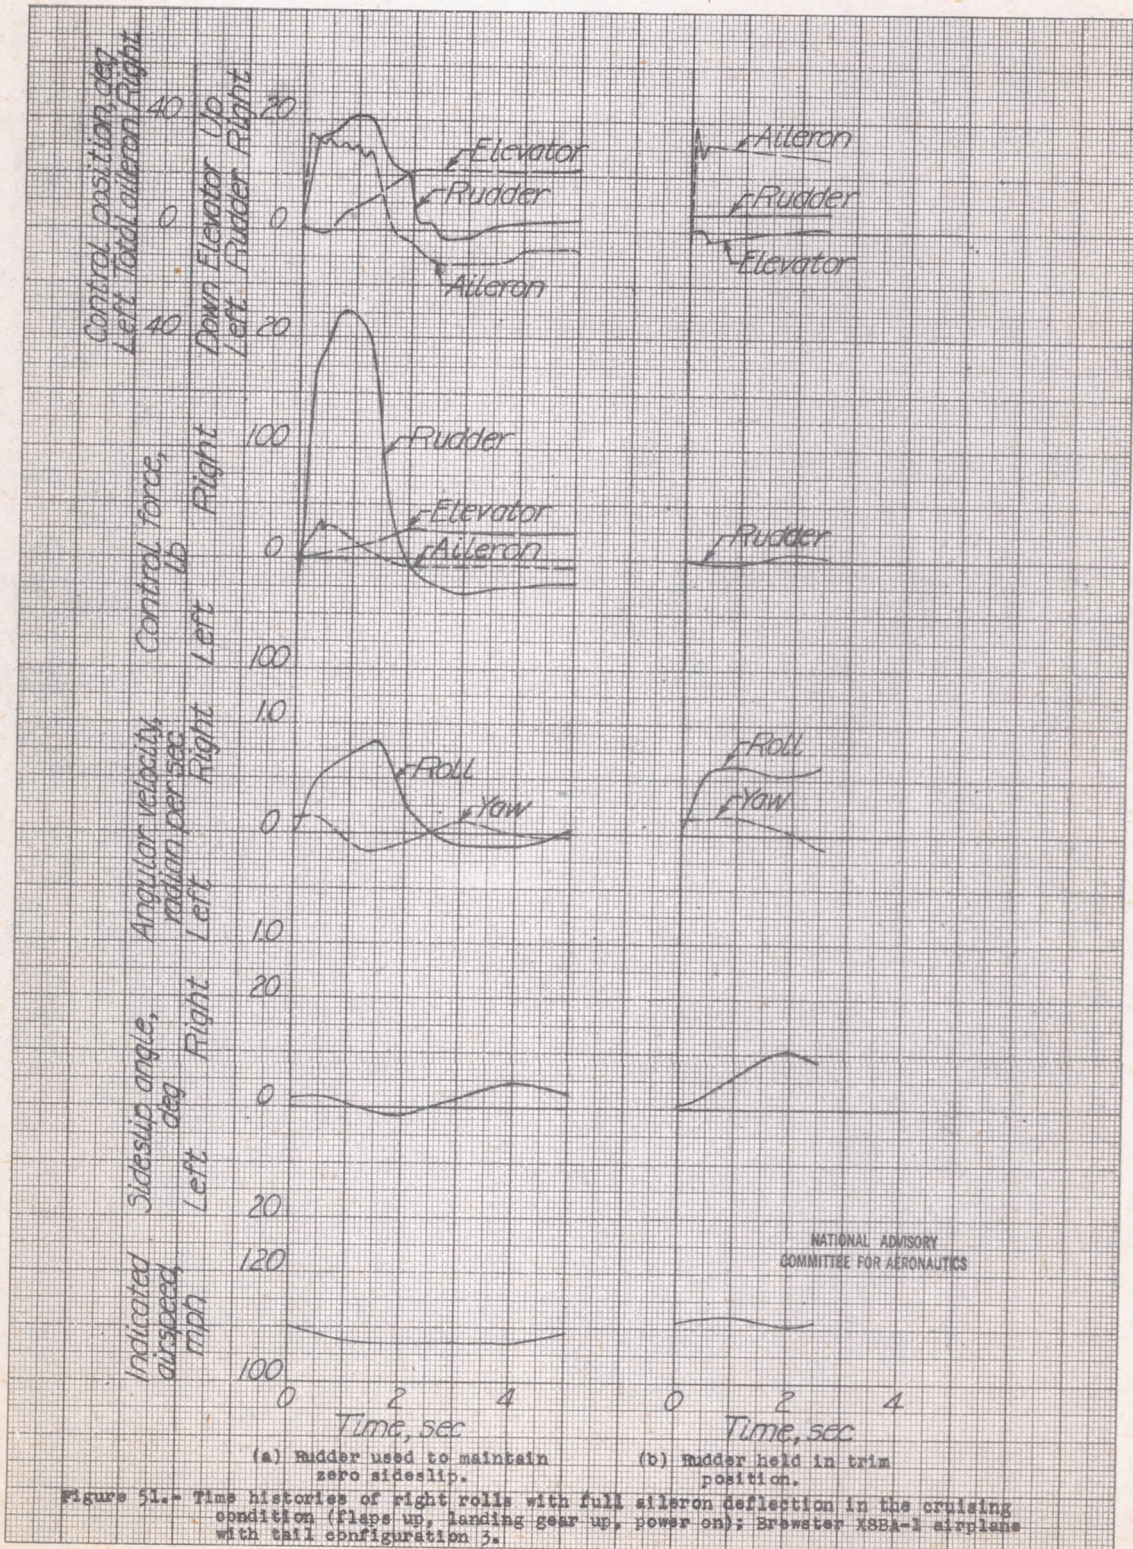 Control position, deg
Left Total aileron Right
Down Elevator Up
Left Rudder Right
40
0
40
20
0
20
Elevator
Rudder
Aileron
Aileron
Rudder
Elevator
Control force,
lb
Left Right
100
0
100
Rudder
Elevator
Aileron
Rudder
Angular velocity,
radian per sec
Left Right
1.0
0
1.0
Roll
Yaw
Roll
Yaw
Sideslip angle,
deg
Left Right
20
0
20
Indicated
airspeed,
mph
120
100
NATIONAL ADVISORY
COMMITTEE FOR AERONAUTICS
0 2 4
Time, sec
0 2 4
Time, sec
(a) Rudder used to maintain
zero sideslip.
(b) Rudder held in trim
position.
Figure 51.- Time histories of right rolls with full aileron deflection in the cruising
condition (flaps up, landing gear up, power on); Brewster XSBA-1 airplane
with tail configuration 3.